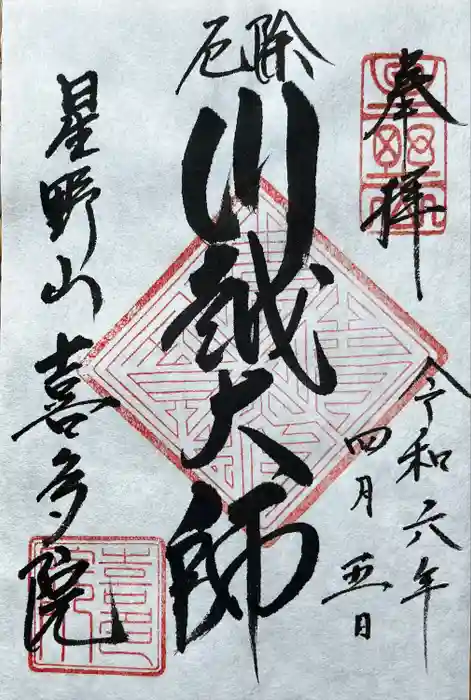 奉拝
令和六年
四月五日
厄除
川越大師
星野山 喜多院